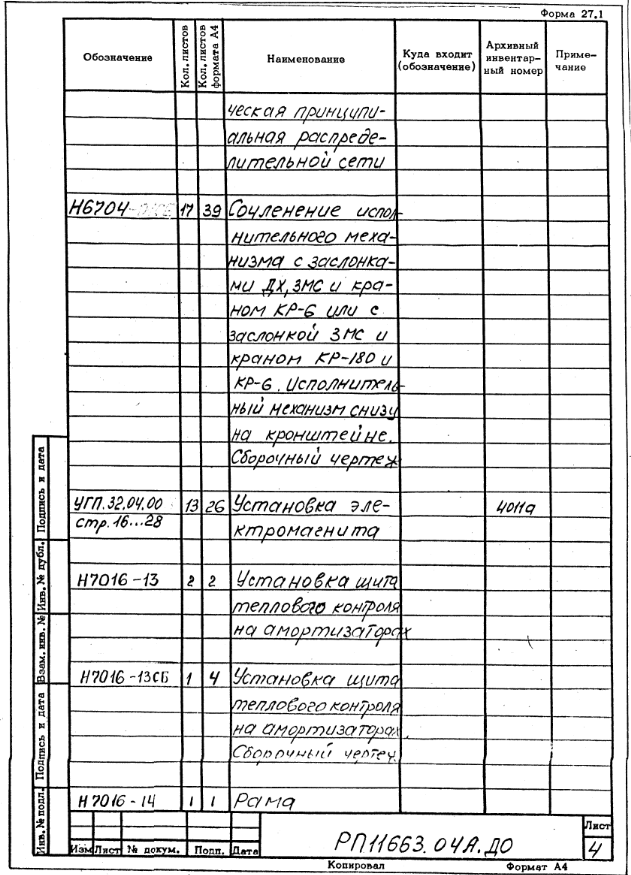 Форма 27.1
Обозначение Кол. листов Кол. листов формата А4 Наименование Куда входит (обозначение) Архивный инвентарный номер Примечание
ческая принципи-
альная распреде-
лительной сети
Н6704 17 39 Сочленение испол-
нительного меха-
низма с заслонка-
ми ДХ, ЗМС и кра-
ном КР-6 или с
заслонкой ЗМС и
краном КР-180 и
КР-6. Исполнитель-
ный механизм снизу
на кронштейне.
Сборочный чертеж
УГП.32.04.00 13 26 Установка эле- 4011а
стр. 16...28 ктромагнита
Н7016-13 2 2 Установка щита
теплового контроля
на амортизаторах
Н7016-13СБ 1 4 Установка щита
теплового контроля
на амортизаторах.
Сборочный чертеж.
Н7016-14 1 1 Рама
Подпись и дата
Инв. № дубл.
Взам. инв. №
Подпись и дата
Инв. № подл.
Изм Лист № докум. Подп. Дата
РП11663.04А.ДО
Лист
4
Копировал Формат А4